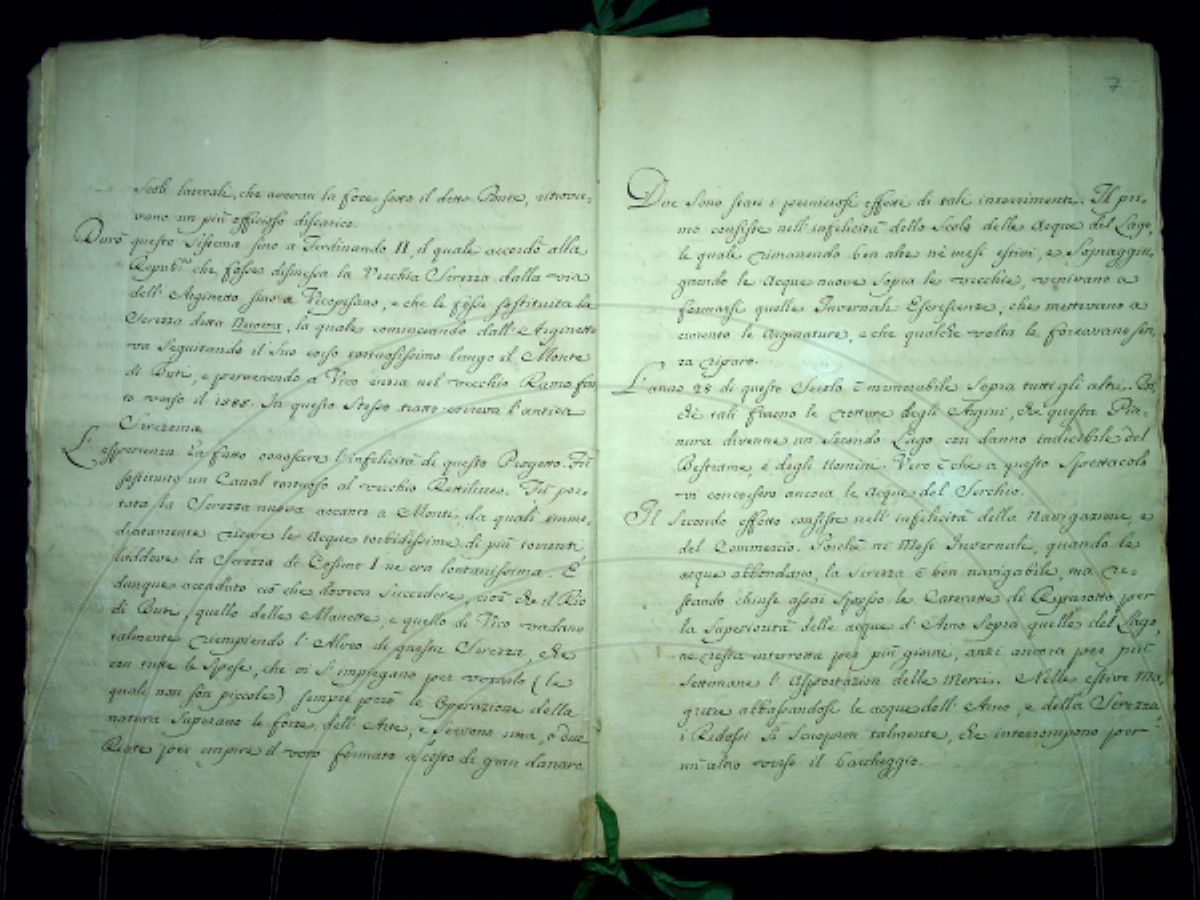 Scoli laterali, che avevan la foce sotto il detto Ponte, ritrova-
vano un più officioso discarico.
Durò questo sistema sino a Ferdinando II, il quale accordò alla
Repub.ca che fosse dismessa la Vecchia Serezza dalla via
dell' Arginetto sino a Vicopisano, e che le fosse sostituita la
Serezza detta Nuova, la quale cominciando dall' Arginetto
va seguitando il suo corso tortuosissimo lungo il Monte
di Buti, e pervenendo a Vico entra nel vecchio Ramo fat-
to verso il 1588. In questo stesso tratto estiva l'antica
Serezzina
L'esperienza ha fatto conoscere l'infelicità di questo Progetto. Fù
sostituito un Canal tortuoso al vecchio Rettilineo. Fù por-
tata la Serezza nuova accanto a Monti, da quali imme-
diatamente riceve le Acque torbidissime di più torrenti,
laddove la Serezza di Cosimo I ne era lontanissima. È
dunque accaduto ciò che doveva succedere, cioè che il Rio
di Buti, quello delle Manette, e quello di Vico vadano
talmente riempiendo l'Alveo di questa Serezza, che
con tutte le Spese, che vi s'impiegano per votarlo (le
quali non son piccole) sempre però le Operazioni della
natura superano le forze dell' Arte, e servono una, o due
Piene per empire il voto formato a costo di gran danaro.
7
Due sono stati i perniciosi effetti di tali interrimenti. Il pri-
mo consiste nell' infelicità dello Scolo delle Acque del Lago,
le quali rimanendo ben alte nè mesi estivi, e sopraggiu-
gnendo le Acque nuove sopra le vecchie, venivano a
formarsi quelle Invernali Escrescenze, che mettevano a
cimento le Arginature, e che qualche volta le forzavano sen-
za riparo.
L'anno 28 di questo Secolo è memorabile sopra tutti gli altri. Poi-
chè tali furono le rotture degli Argini, che questa Pia-
nura divenne un secondo Lago con danno indicibile del
Bestiame, e degli Uomini. Vero è che a questo Spettacolo
vi concorsero ancora le Acque del Serchio.
Il Secondo effetto consiste nell' infelicità della Navigazione, e
del Commercio. Poichè ni Mesi Invernali, quando le
acque abbondano, la Serezza è ben navigabile, ma re-
stando chiuse assai spesso le Cateratte di Ripafratta per
la superiorità delle acque d'Arno sopra quelle del Lago,
ne resta interrotta per più giorni, anzi ancora per più
settimane l'Asportazion delle Merci. Nelle estive Ma-
grezze abbassandosi le acque dell' Arno, e della Serezza,
i Ridossi si scuopron talmente, che interrompono per
un' altro verso il barcheggio.